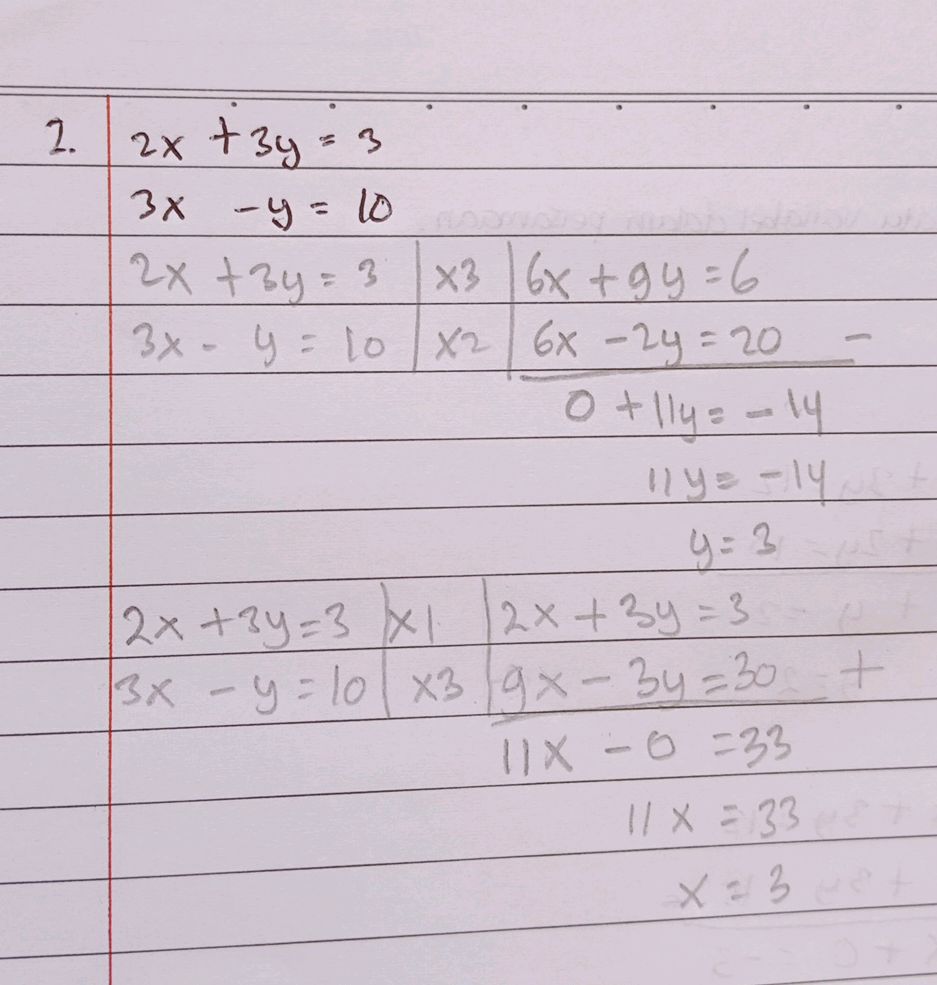 2. 2x + 3y = 3
3x - y = 10
2x + 3y = 3 | x3 | 6x + 9y = 6
3x - y = 10 | x2 | 6x - 2y = 20 -
0 + 11y = -14
11y = -14
y = 3
2x + 3y = 3 | x1 | 2x + 3y = 3
3x - y = 10 | x3 | 9x - 3y = 30 +
11x - 0 = 33
11x = 33
x = 3